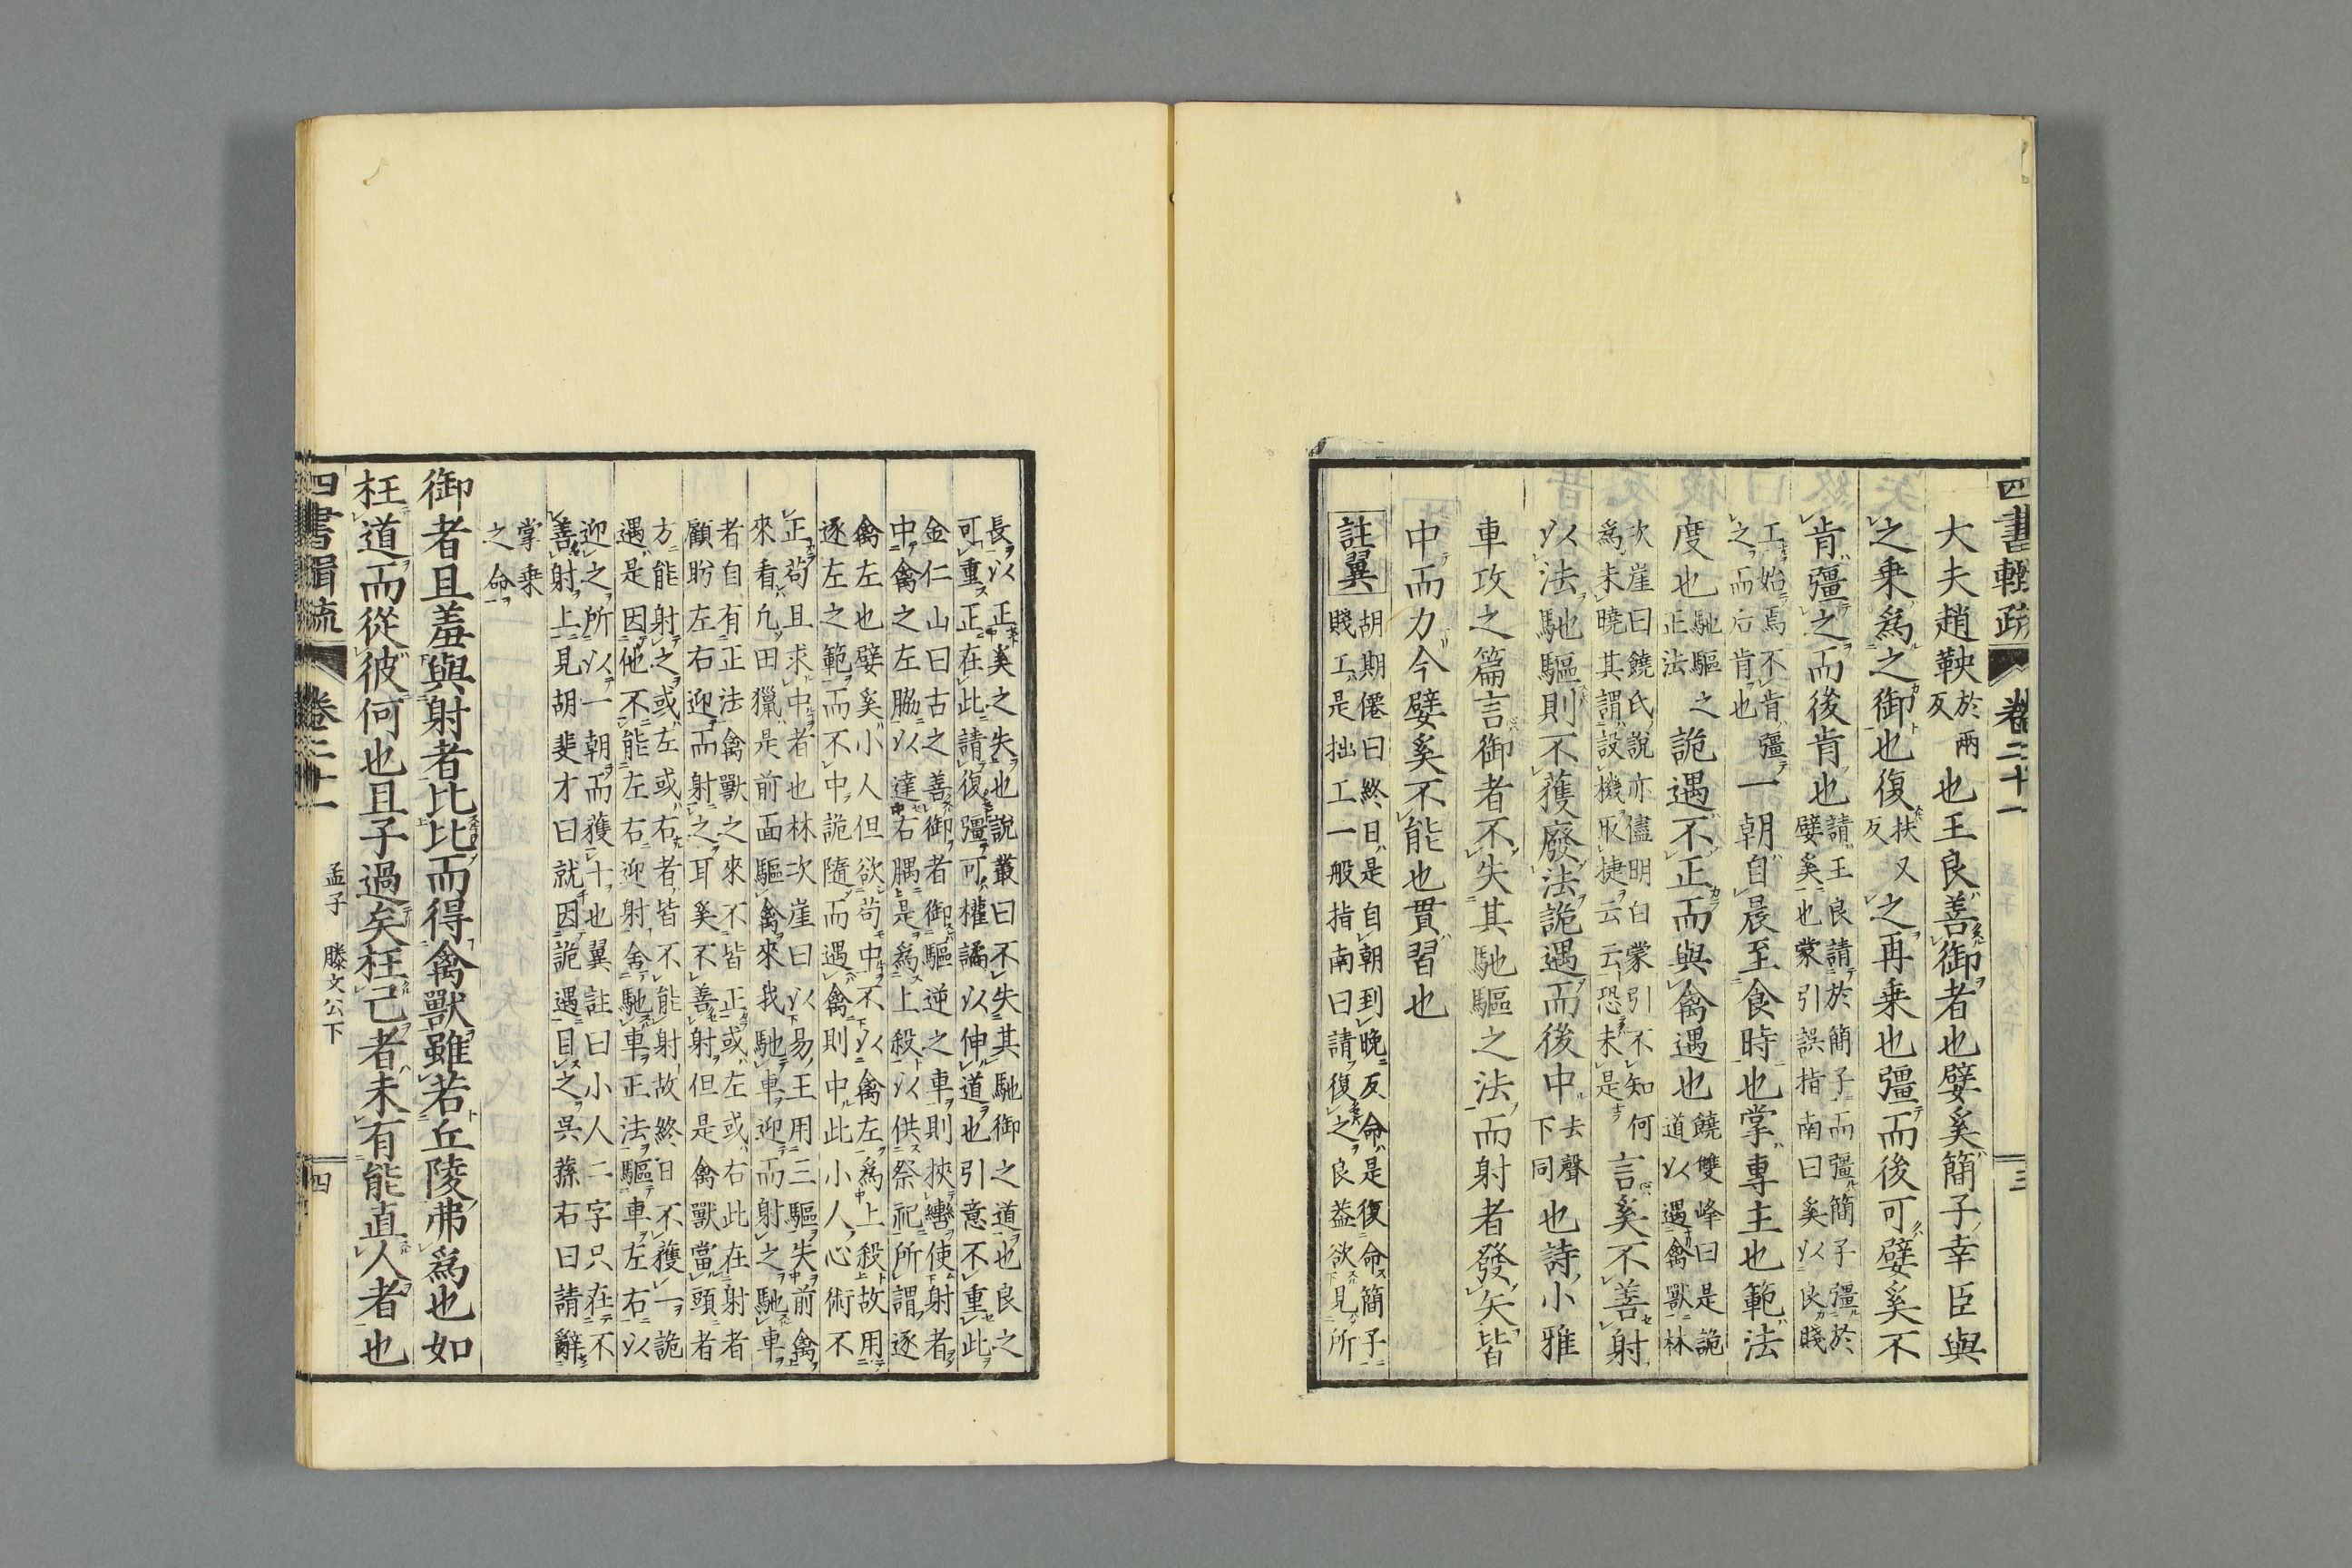 四書輯疏 卷二十一 三
大夫趙鞅於兩反也王良善御者也嬖奚簡子幸臣與
之乗爲之御也復扶又反之再乗也彊而後可嬖奚不
肯彊之而後肯也請王良請於簡子而彊簡子彊於嬖奚也蒙引誤指南曰奚以良賤
工始焉不肯彊之而后肯也一朝自晨至食時也掌專主也範法
度也馳驅之正法詭遇不正而與禽遇也饒雙峰曰是詭道以遇禽獸林
次崖曰饒氏說亦儘明白蒙引不知何爲未曉其謂設機取捷云云恐未是言奚不善射
以法馳驅則不獲廢法詭遇而後中去聲下同也詩小雅
車攻之篇言御者不失其馳驅之法而射者發矢皆
中而力今嬖奚不能也貫習也
註翼 胡期僊曰終日是自朝到晚反命是復命簡子賤工是拙工一般指南曰請復之良益欲見所
長以正奚之失也說叢曰不失其馳御之道也良之可重正在此請復彊可權譎以伸道也引意不重此
金仁山曰古之善御者御驅逆之車則挾轡使射者中禽之左脇以達右腢是爲上殺以供祭祀所謂逐
禽左也嬖奚小人但欲苟中不以禽左爲上殺故用逐左之範而不中詭隨而遇禽則中此小人心術不
正苟且求中者也林次崖曰以易王用三驅失前禽來看凢田獵是前面驅禽來我馳車迎而射之馳車
者自有正法禽獸之來不皆正或左或右此在射者顧盻左右迎而射之耳奚不善射但是禽獸當頭者
方能射之或左或右者皆不能射故終日不獲一詭遇是因他不能左右迎射舍馳車正法驅車左右以
迎之所以一朝而獲十也翼註曰小人二字只在不善射上見胡斐才曰就因詭遇目之呉蓀右曰請辭
掌乗之命
御者且羞與射者比比而得禽獸雖若丘陵弗爲也如
枉道而從彼何也且子過矣枉己者未有能直人者也
四書輯疏 卷二十一 孟子 滕文公下 四